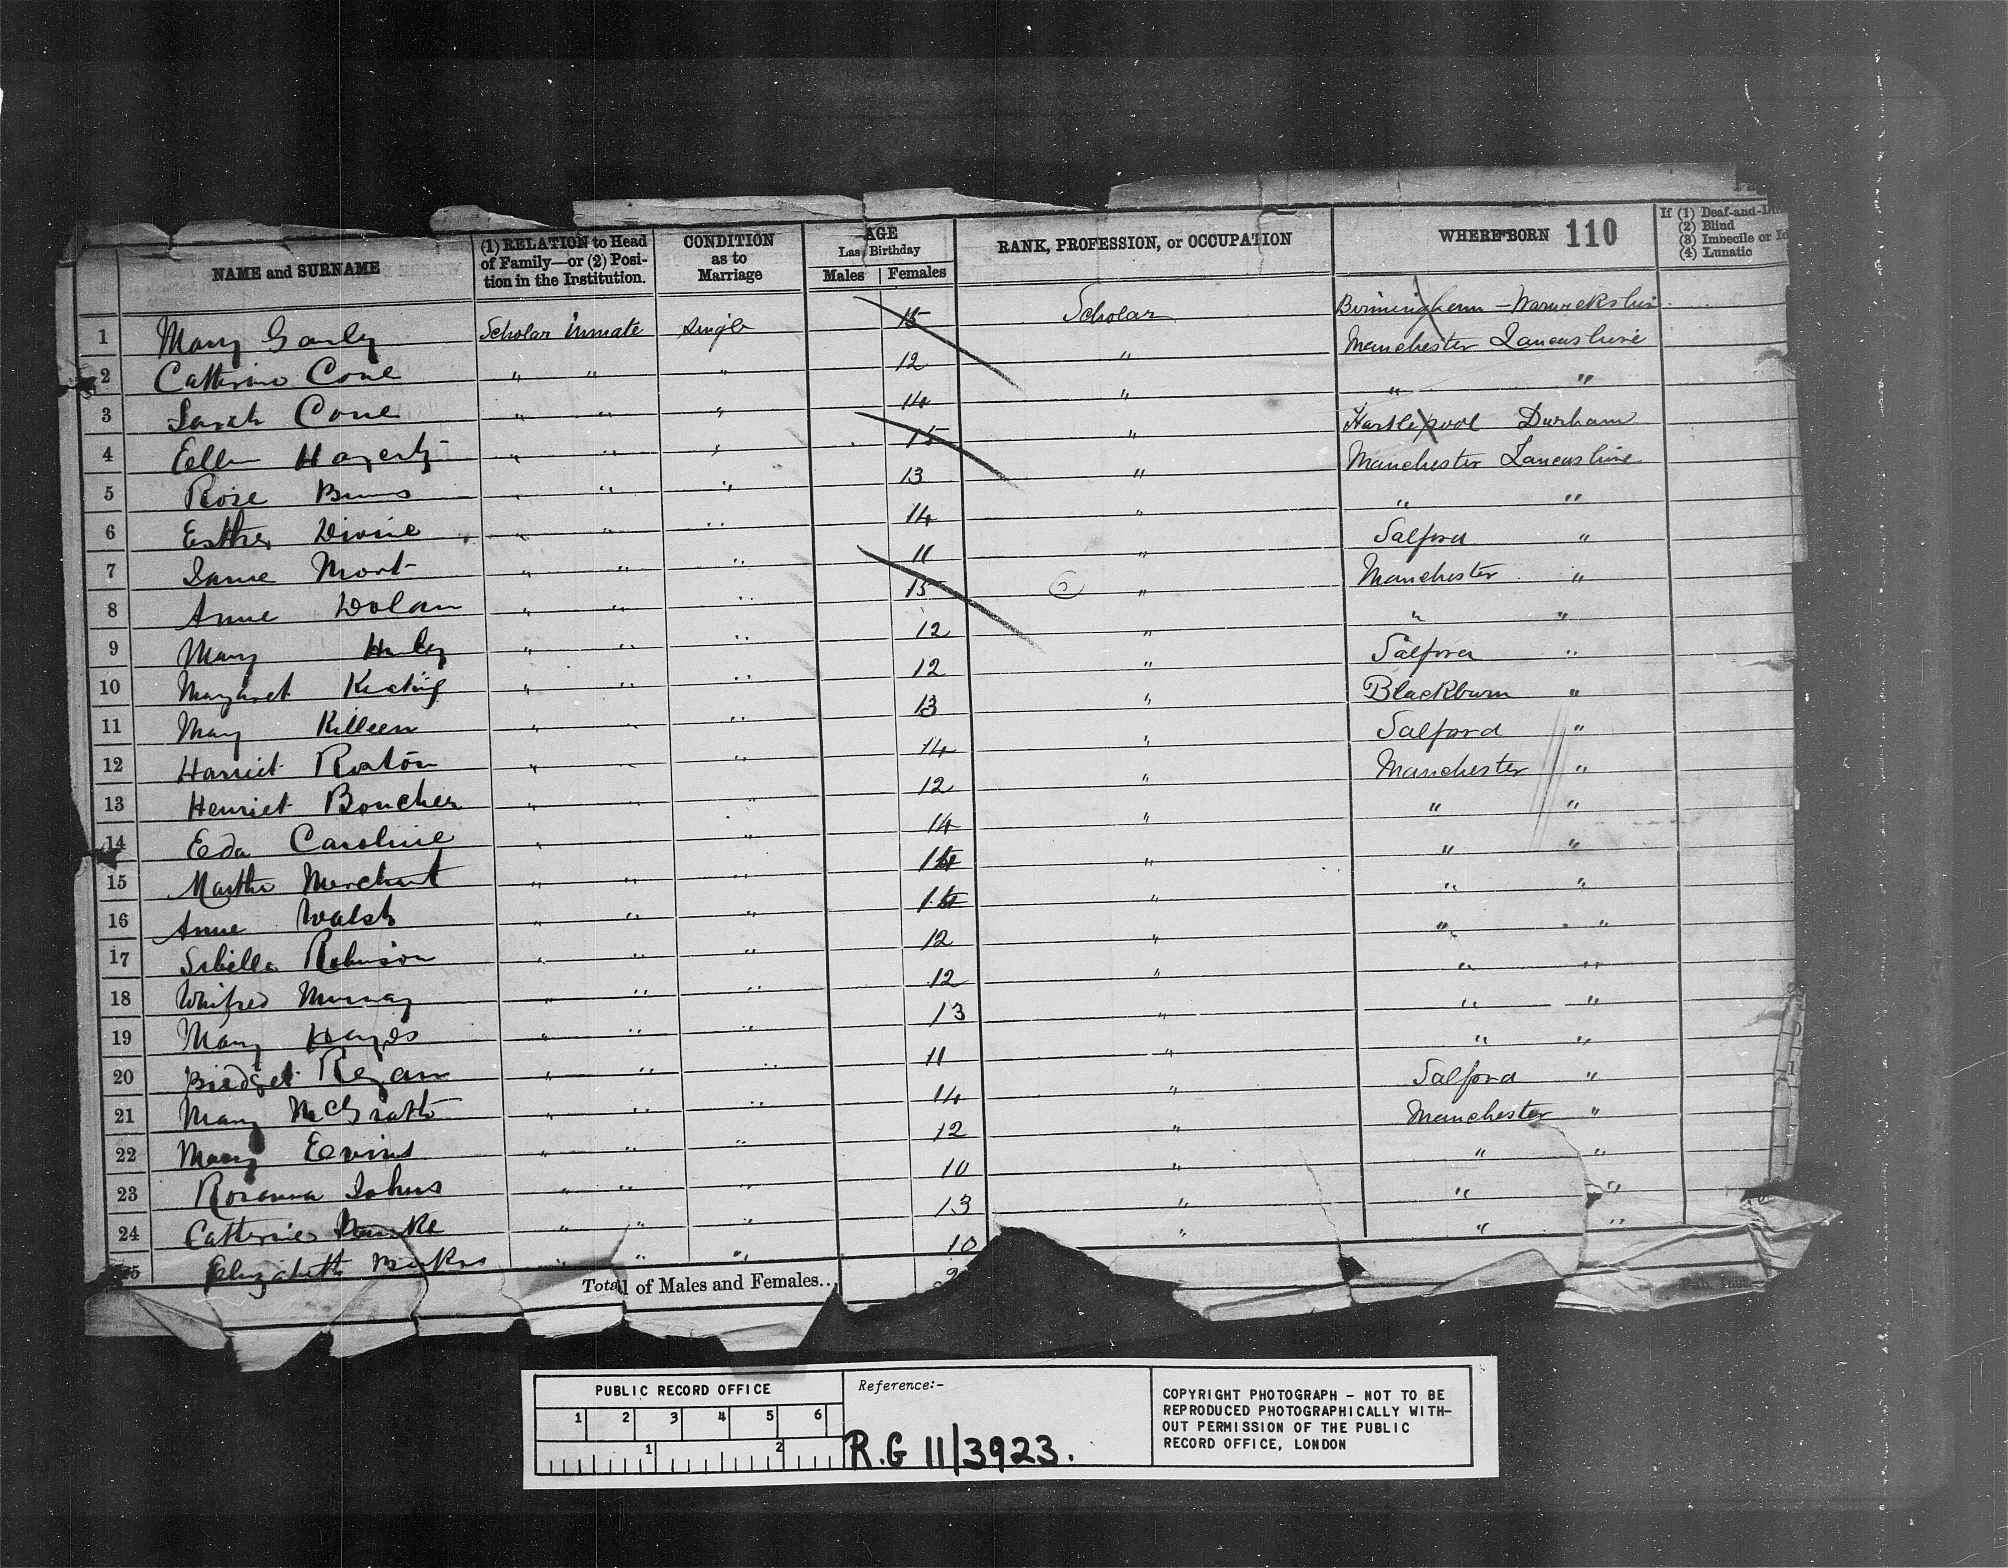 NAME and SURNAME | (1) RELATION to Head of Family—or (2) Position in the Institution. | CONDITION as to Marriage | AGE Last Birthday Males Females | RANK, PROFESSION, or OCCUPATION | WHERE BORN 110 | If (1) Deaf-and- (2) Blind (3) Imbecile or (4) Lunatic
1 Mary | Scholar Inmate | Single | 15 | Scholar | Birmingham - Warwickshire
2 Catherine Cone | " " | " | 12 | " | Manchester Lancashire
3 Sarah Cone | " " | " | 14 | " | " "
4 Ellen Hagerty | " " | " | 15 | " | Hartlepool Durham
5 Rose Burns | " " | " | 13 | " | Manchester Lancashire
6 Esther Divine | " " | " | 14 | " | " "
7 Jane Mort | " " | " | 11 | " | Salford "
8 Anne Dolan | " " | " | 15 | " | Manchester "
9 Mary | " " | " | 12 | " | " "
10 Margaret Keating | " " | " | 12 | " | Salford "
11 Mary Killeen | " " | " | 13 | " | Blackburn "
12 Harriet Roxton | " " | " | 14 | " | Salford "
13 Henriet Boucher | " " | " | 12 | " | Manchester "
14 Eda Caroline | " | " | 14 | " | " "
15 Martha Merchant | " " | " | 14 | " | " "
16 Anne Walsh | " " | " | 14 | " | " "
17 Sibella Robinson | " " | " | 12 | " | " "
18 Winifred Murray | " " | " | 12 | " | " "
19 Mary Hayes | " " | " | 13 | " | " "
20 Bridget Regan | " " | " | 11 | " | " "
21 Mary McGrath | " " | " | 14 | " | Salford "
22 Mary Eevins | " " | " | 12 | " | Manchester "
23 Rosanna Johns | " " | " | 10 | " | " "
24 Catherine | " " | " | 13 | " | " "
25 Elizabeth | " " | " | 10 | " | " "
Total of Males and Females..
PUBLIC RECORD OFFICE
1 2 3 4 5 6
1 2
Reference:-
R.G 11/3923.
COPYRIGHT PHOTOGRAPH - NOT TO BE
REPRODUCED PHOTOGRAPHICALLY WITH-
OUT PERMISSION OF THE PUBLIC
RECORD OFFICE, LONDON